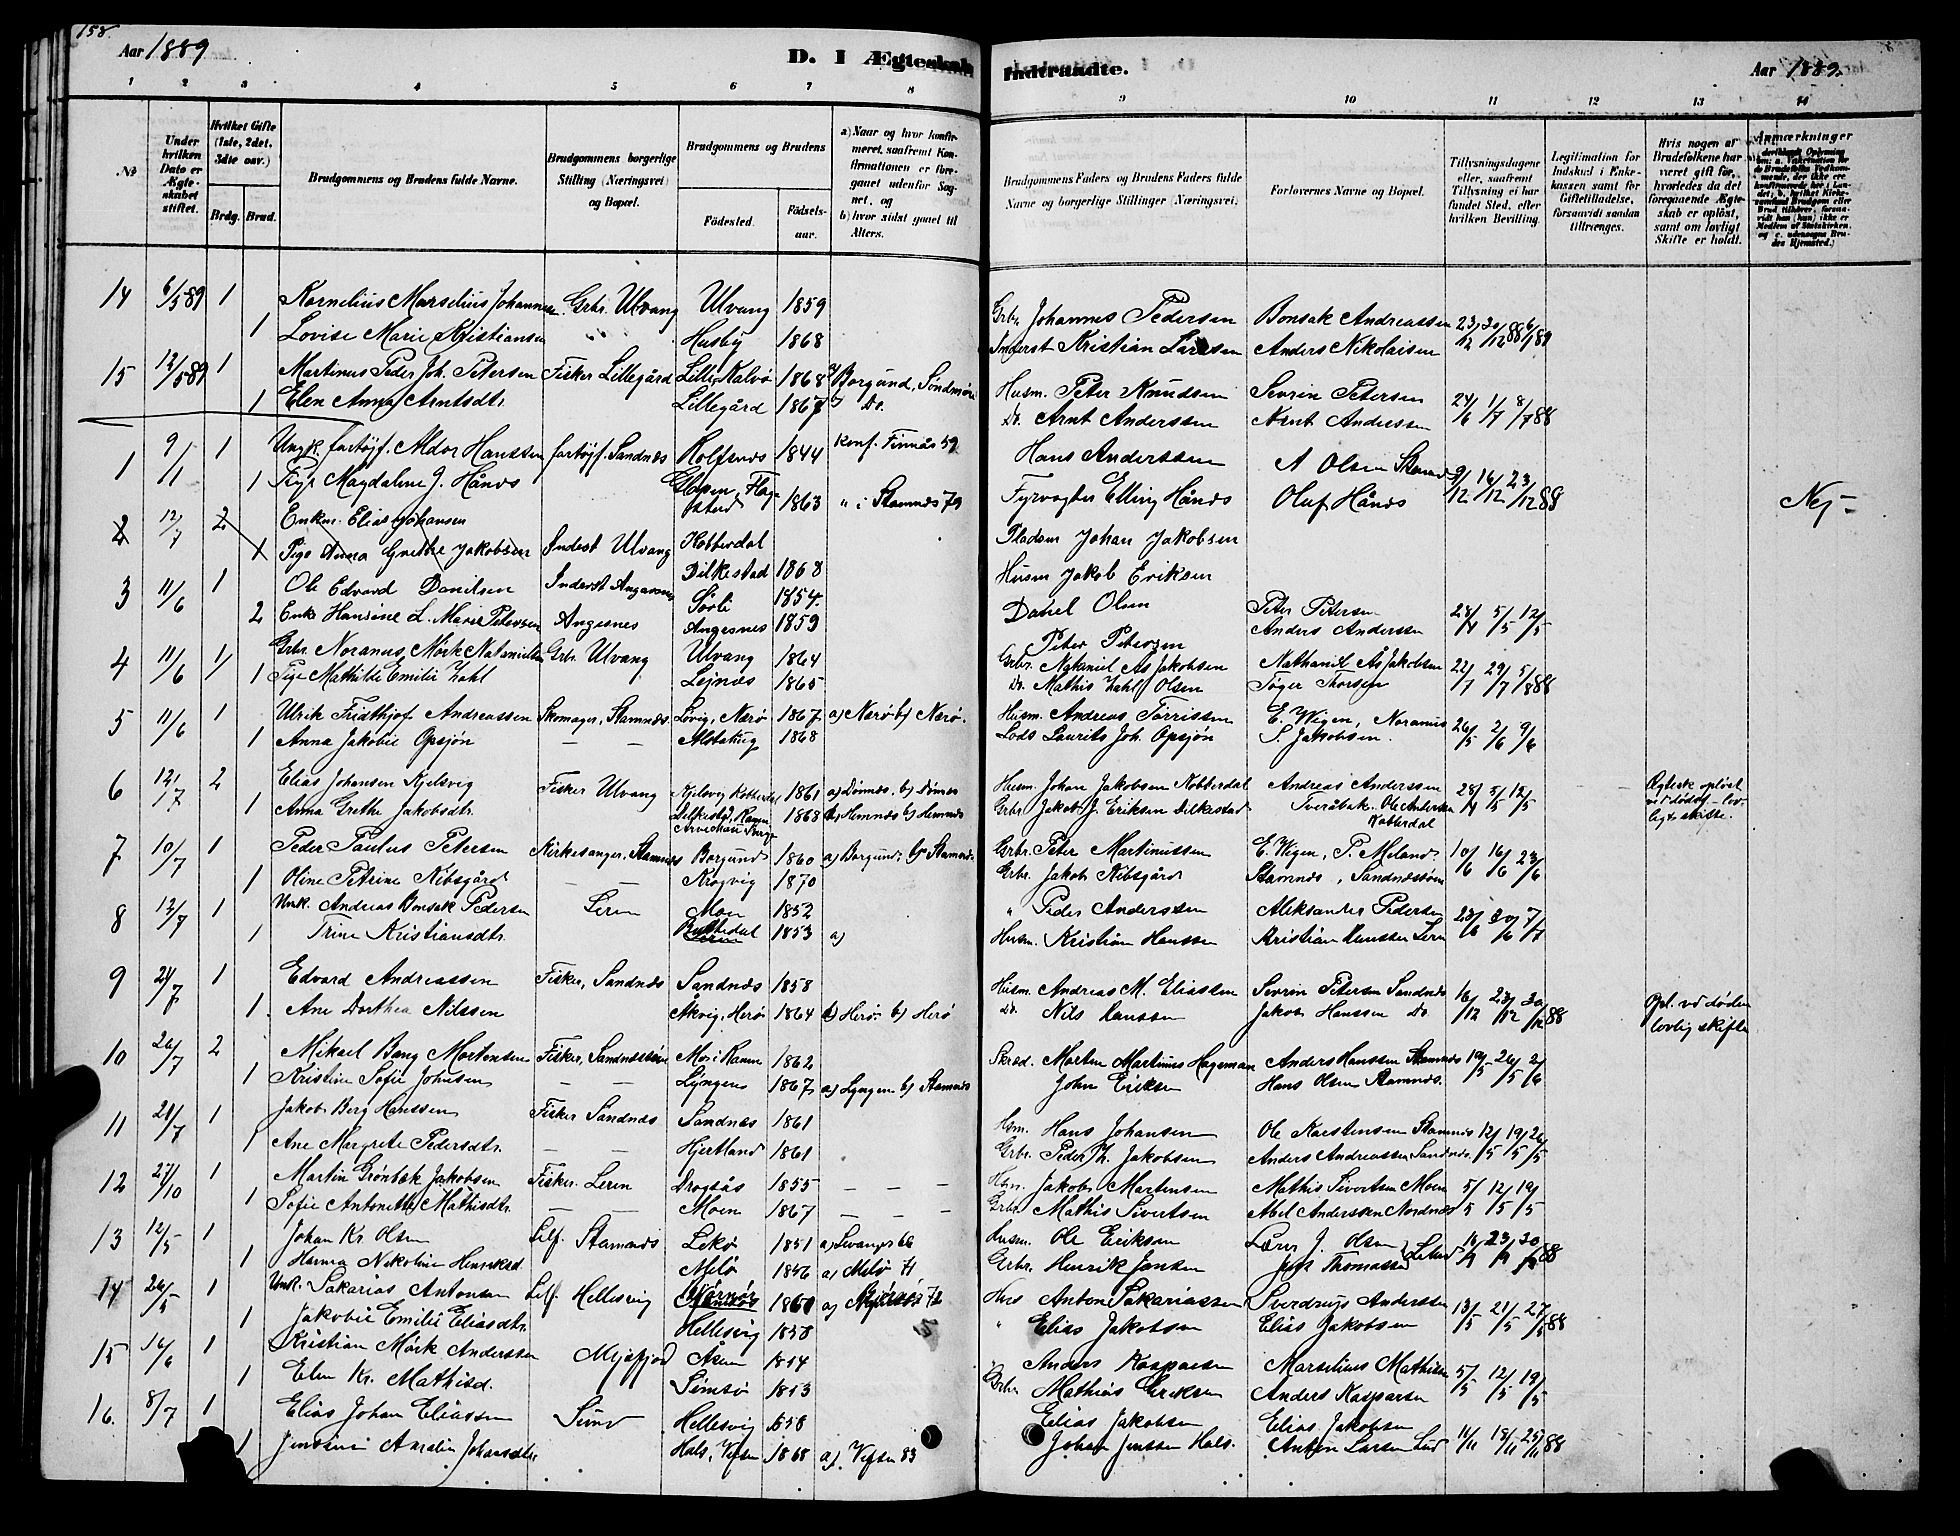 158.
Aar 1889
D. I Ægteskab
Indtraadte.
Aar 1889.
1 2 3 4 5 6 7 8 9 10 11 12 13 14
No
Under hvilken Dato er Ægteskabet stiftet.
Hvilket Gifte (1ste, 2det, 3dte osv.)
Brdg. Brud.
Brudgommens og Brudens fulde Navne.
Brudgommens borgerlige Stilling (Næringsvei) og Bopæl.
Brudgommens og Brudens
Fødested. Fødselsaar.
a) Naar og hvor konfirmeret, saafremt Konfirmationen er foregaaet udenfor Sognet, og
b) hvor sidst gaaet til Alters.
Brudgommens Faders og Brudens Faders fulde Navne og borgerlige Stillinger (Næringsvei).
Forlovernes Navne og Bopæl.
Tillysningsdagene eller, saafremt Tillysning ei har fundet Sted, efter hvilken Bevilling.
Legitimation for Indskud i Enkekassen samt for Giftetilladelse, forsaavidt saadan tiltrænges.
Hvis nogen af Brudefolkene har været gift før, hvorledes da det foregaaende Ægteskab er opløst, samt om lovligt Skifte er holdt.
Anmærkninger
14 6/5 89 1 Kornelius Marselius Johannesen Grbr. Ulvang Ulvang 1859 Grbr. Johannes Pedersen Bonsak Andreassen 23/12 30/12 88 6/1 89
1 Lovise Marie Kristiansen Husby 1868 Inderst Kristian Larssen Anders Nikolaisen
15 12/5 89 1 Martinus Peder Joh. Petersen Fisker Lillegård Lille Kalvø 1868 Borgund, Søndmøre Husm. Peter Knudsen Sevrin Petersen 24/6 1/7 8/7 88
1 Elen Anna Arntsdtr. Lillegård 1867 Do. Do. Arnt Anderssen Arnt Andressen
1 9/1 1 Ungk. fartøjf. Aldor Hanssen fartøjf. Sandnæs Rolfsnæs 1844 Konf. Finnås 59 Hans Anderssen A Olsen Stamnæs 9/12 16/12 23/12 88
1 Pige Magdaline J. Hånds 1863 " i Stamnæs 79 Fyrvogter Elling Hånds Oluf Hånds Nej -
2 12/7 2 Enkm. Elias Johansen Inderst Ulvang Kobberdal Pladsm Johan Jakobsen
1 Pige Anna Grethe Jakobsen Dilkestad 1868 Husm Jakob Eriksen
3 11/6 1 Ole Edvard Danilsen Inderst Angersnes Sørli 1854. Daniel Olsen Peter Petersen 28/4 5/5 12/5
2 Enke Hansine L. Marie Petersen Angesnes Angesnes 1859 Peter Petersen Anders Anderssen
4 11/6 1 Grbr. Noranus Mørk Natanielsen Grbr. Ulvang Ulvang 1864 Grbr. Nataniel As Jakobsen Nathaniel As Jakobsen 22/7 29/7 5/8 88
1 Pige Mathilde Emilie Zahl Lejnæs 1865 Do. Mathis Zahl Olsen Tøger Thorsen
5 11/6 1 Ulrik Fridthjof Andreassen Skomager, Stamnæs Lovig, Nærø 1867 a) Nærø b) Nærø. Husm. Andreas Torrissen E. Wigen, Noranus 26/5 2/6 9/6
1 Anna Jakobie Opsjøn — — Alstahaug 1868 Lods Laurits Joh. Opsjøn S. Jakobsen.
6 12/7 2 Elias Johansen Kjelsvig Fisker Ulvang Kjelsvig Kobberdal 1861 a) Dønnæs, b) Dønnæs Husm. Johan Jakobsen Kobberdal Andreas Anderssen 28/4 5/5 12/5 Ægtesk. opløst ved døden - lovligt skifte.
1 Anna Grethe Jakobsdtr. 1868 a) Hemnæs b) Hemnæs Grbr. Jakob J. Eriksen Dilkestad Sveråbak, Ole Andersen Kobberdal
7 10/7 1 Peder Paulus Petersen Kirkesanger, Stamnæs Borgund 1860 a) Borgund b) Stamnæs Grbr. Peter Martinussen E. Wigen, P. Meland 10/6 16/6 23/6
1 Oline Petrine Nibsgård — — Krogvig 1870 Grbr. Jakob Nibsgård Stamnæs, Sandnæssøen
8 12/7 1 Unk. Andreas Bonsak Pedersen Leren Moen 1852 " Peder Anderssen Aleksander Pedersen 23/6 30/6 7/7
1 Trine Kristiansdtr. Leren 1853 a) Husm. Kristian Hanssen Kristian Hanssen Leren
9 24/7 1 Edvard Andreassen Fisker, Sandnæs Sandnæs 1858 Husm. Andreas M. Eliassen Sevrin Petersen Sandnæs 16/12 23/12 30/12 88
1 Ane Dorthea Nilssen Åkvig, Herø 1864 a) Herø b) Herø Do. Nils Hanssen Jakob Hanssen Do Opl. ved døden lovlig skifte
10 26/7 2 Mikael Bang Mortensen Fisker, Sandnæssøen Mo i Ranen 1862 Skræd. Morten Martinus Hageman Anders Hanssen Stamnæs 19/5 26/5 2/6
1 Kristine Sofie Johnsen — — Lyngen 1867 a) Lyngen b) Stamnæs John Eriksen Hans Olsen Stamnæs.
11 28/7 1 Jakob Berg Hanssen Fisker Sandnæs Sandnæs 1861 Hsm. Hans Johansen Ole Karstensen Stamnæs 12/5 19/5 26/5
1 Ane Margrete Pedersdtr. — — Hjertland 1861 Grbr. Peder Z. Jakobsen Anders Andreassen Sandnæs.
12 27/10 1 Martin Grønbæk Jakobsen Fisker. Leren Dragsås 1855 — — — Husm. Jakob Martensen Mathis Sivertsen Moen 5/5 12/5 19/5
1 Sofie Antonette Mathisdtr. — — Moen 1867 — — — Grbr. Mathis Sivertsen Abel Anderssen Nordnæs
13 12/5 1 Johan Kr. Olsen Self. Stamnæs Lekø 1851 a) Levanger 66 Husm. Ole Eriksen 16/9 23/9 30/9 88
1 Hanna Nikoline Henriksd. Melø 1856 a) Melø 71 Grbr. Henrik Jensen Jens Thomassen
14 26/5 1 Unk. Sakarias Antonsen Self. Hellesvig Bjørnør 1860 a) Bjørnør 72 Hus Anton Sakariassen Sverdrup Anderssen 13/5 21/5 27/5 88
1 Jakobie Emilie Eliasdtr. Hellesvig 1858 " Elias Jakobsen Elias Jakobsen
15 16/6 1 Kristian Mørk Anderssen Mejsfjord Åsen 1854 Anders Kasparsen Marselius Mathisen 5/5 12/5 19/5
1 Elen Kr. Mathisd. Sømsø 1853 Grbr Mathias Eriksen Anders Kasparsen
16. 8/7 1 Elias Johan Eliassen Sund Hellesvig 1858 Elias Jakobsen Elias Jakobsen 11/11 18/11 25/11 88
1 Jensine Amalie Johansdtr. Hals, Vefsen 1868 a) Vefsen 83 Johan Jenssen Hals. Anton Larsen Sund